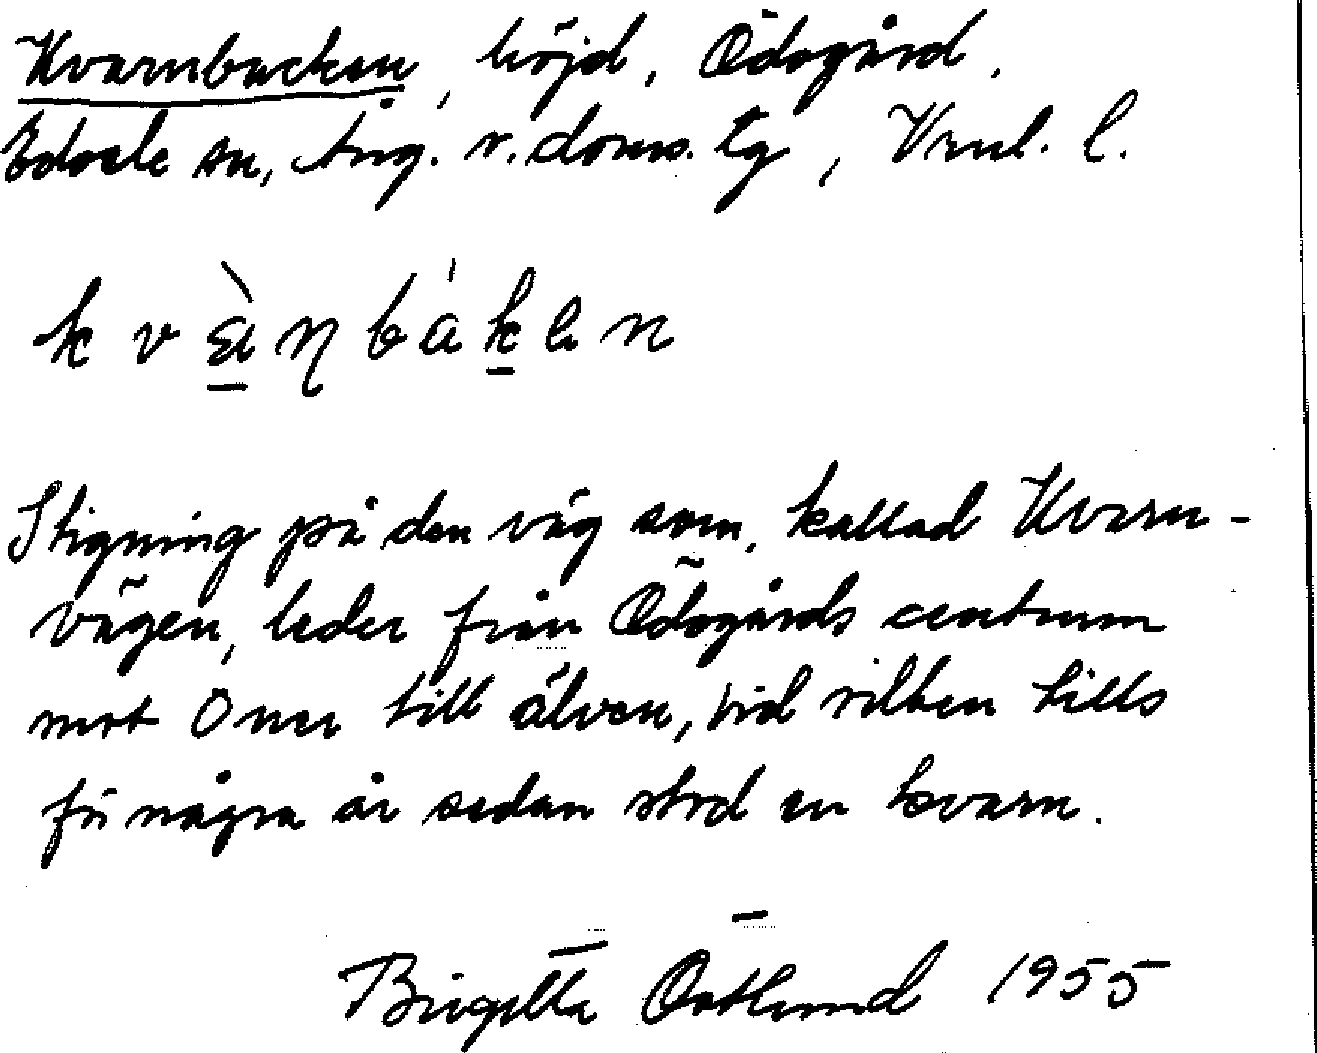 Kvarnbacken, höjd, Ödsgård,
Edsele sn, Ång. v. doms. tg, Vnl. l.
kvànbáken
Stigning på den väg som, kallad Kvarn-
vägen, leder från Ödsgårds centrum
mot Öner till älven, vid vilken tills
för några år sedan stod en kvarn.
Birgitta Östlund 1955